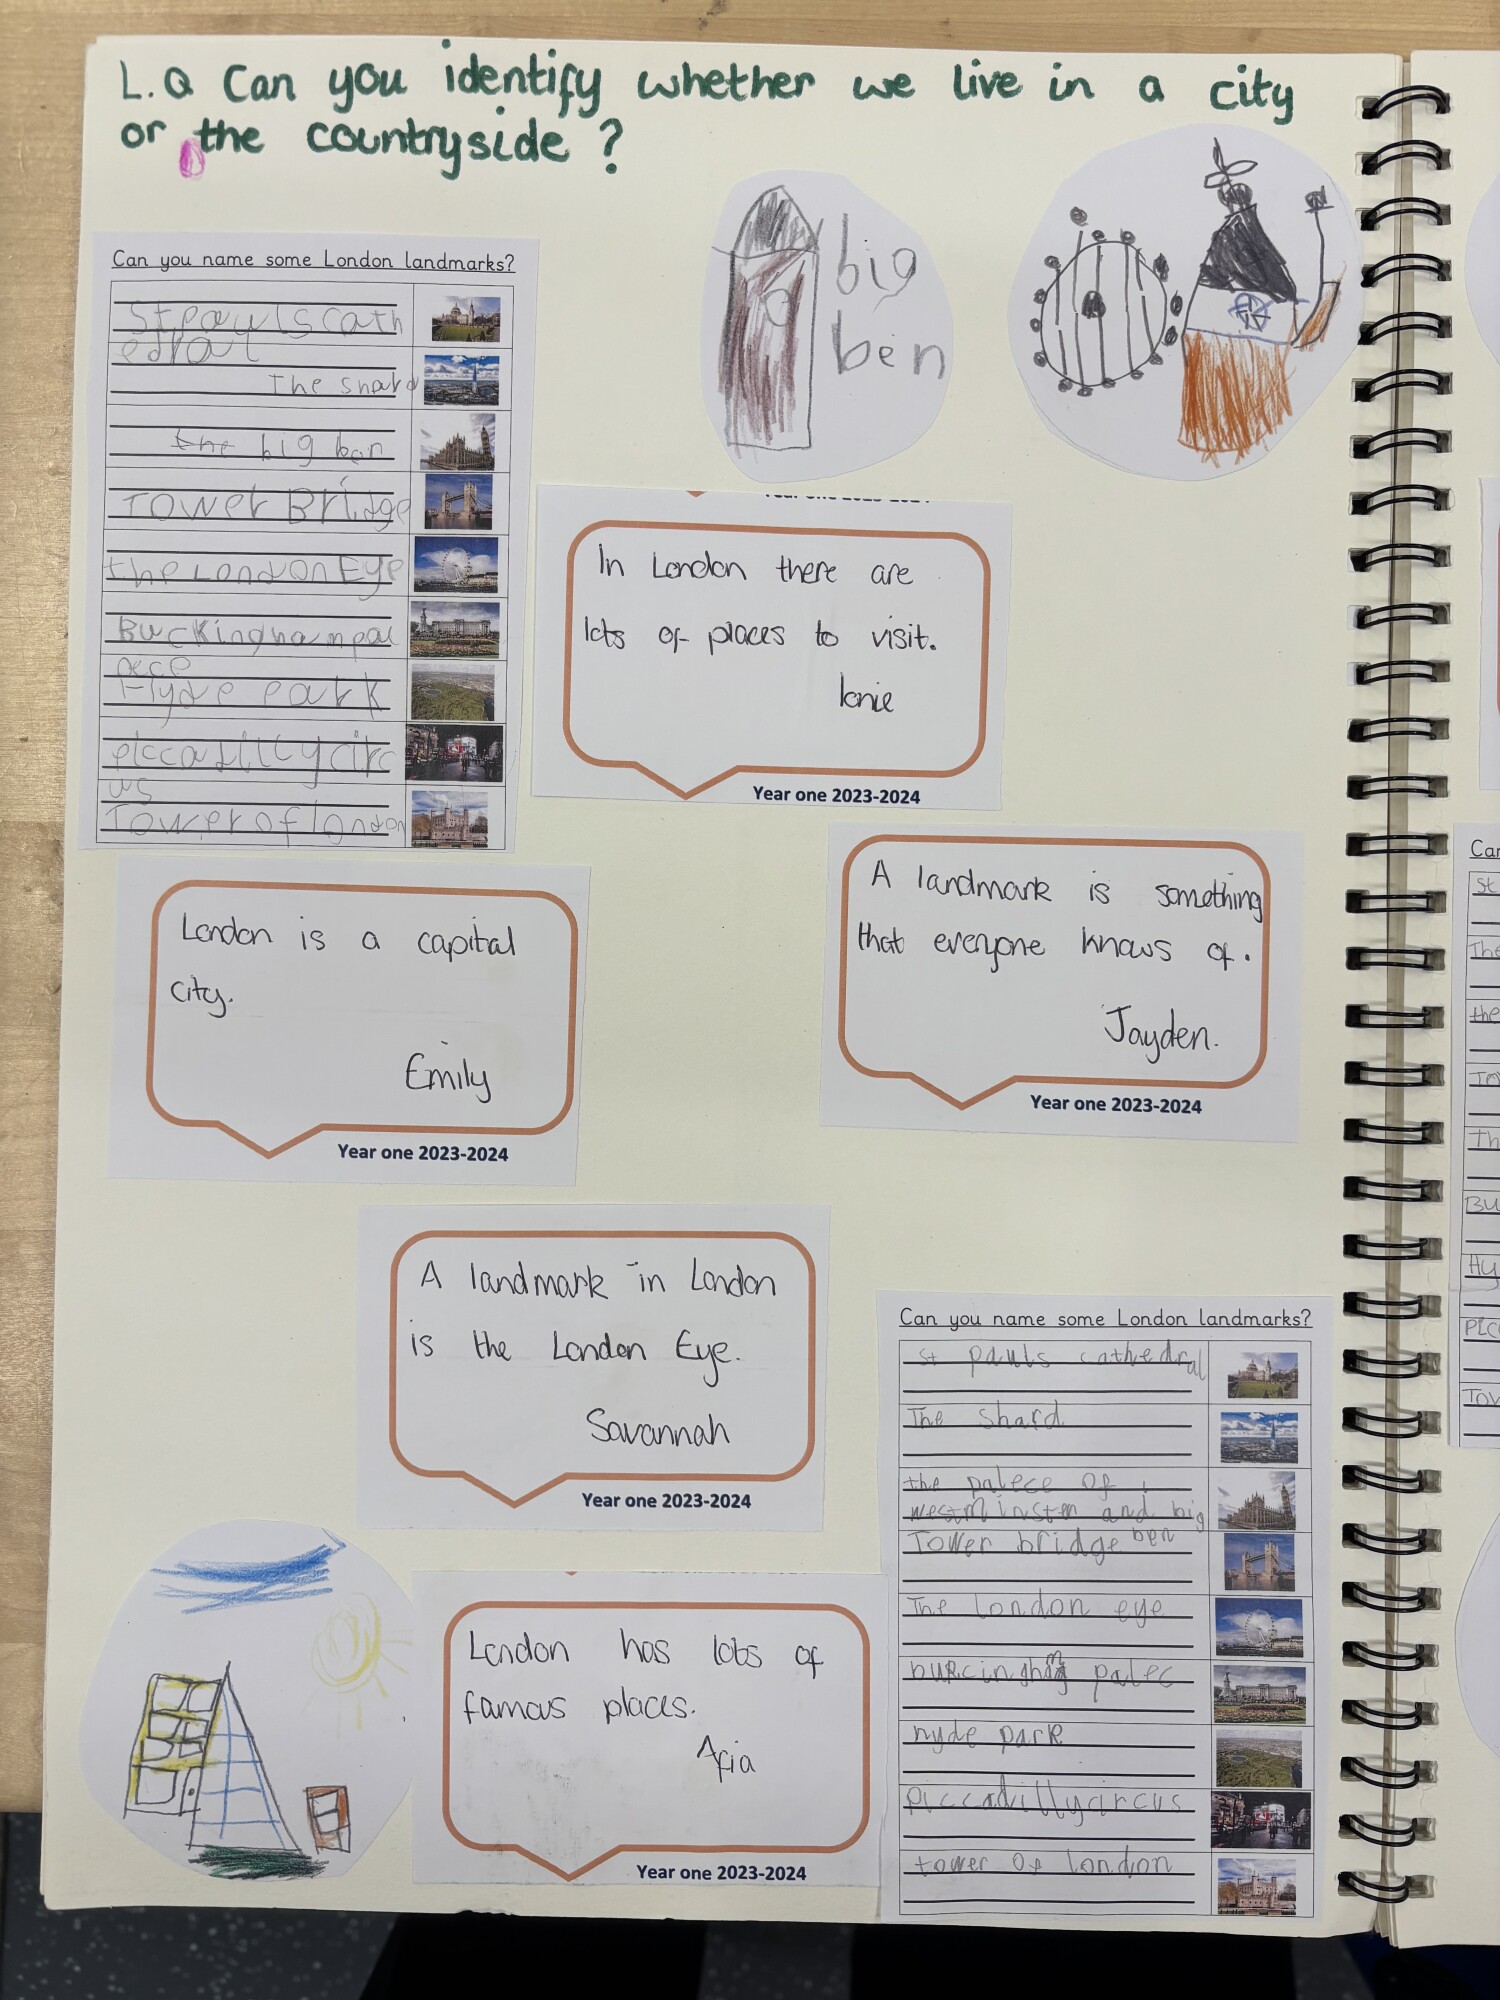 L.Q Can you identify whether we live in a city
or the countryside ?
Can you name some London landmarks?
St pauls cath
edral
The shard
the big ben
Tower Bridge
the London Eye
Buckinghampal
aece
Hyde park
piccadillycirc
us
Tower of london
big
ben
In London there are
lots of places to visit.
Year one 2023-2024
London is a capital
city.
Emily
Year one 2023-2024
A landmark is something
that everyone knows of.
Jayden.
Year one 2023-2024
A landmark in London
is the London Eye.
Savannah
Year one 2023-2024
London has lots of
famous places.
Afia
Year one 2023-2024
Can you name some London landmarks?
St pauls cathedral
The shard
the palece of
westminsten and big
ben
Tower bridge
The london eye
palec
hyde park
piccadillycircus
tower of london